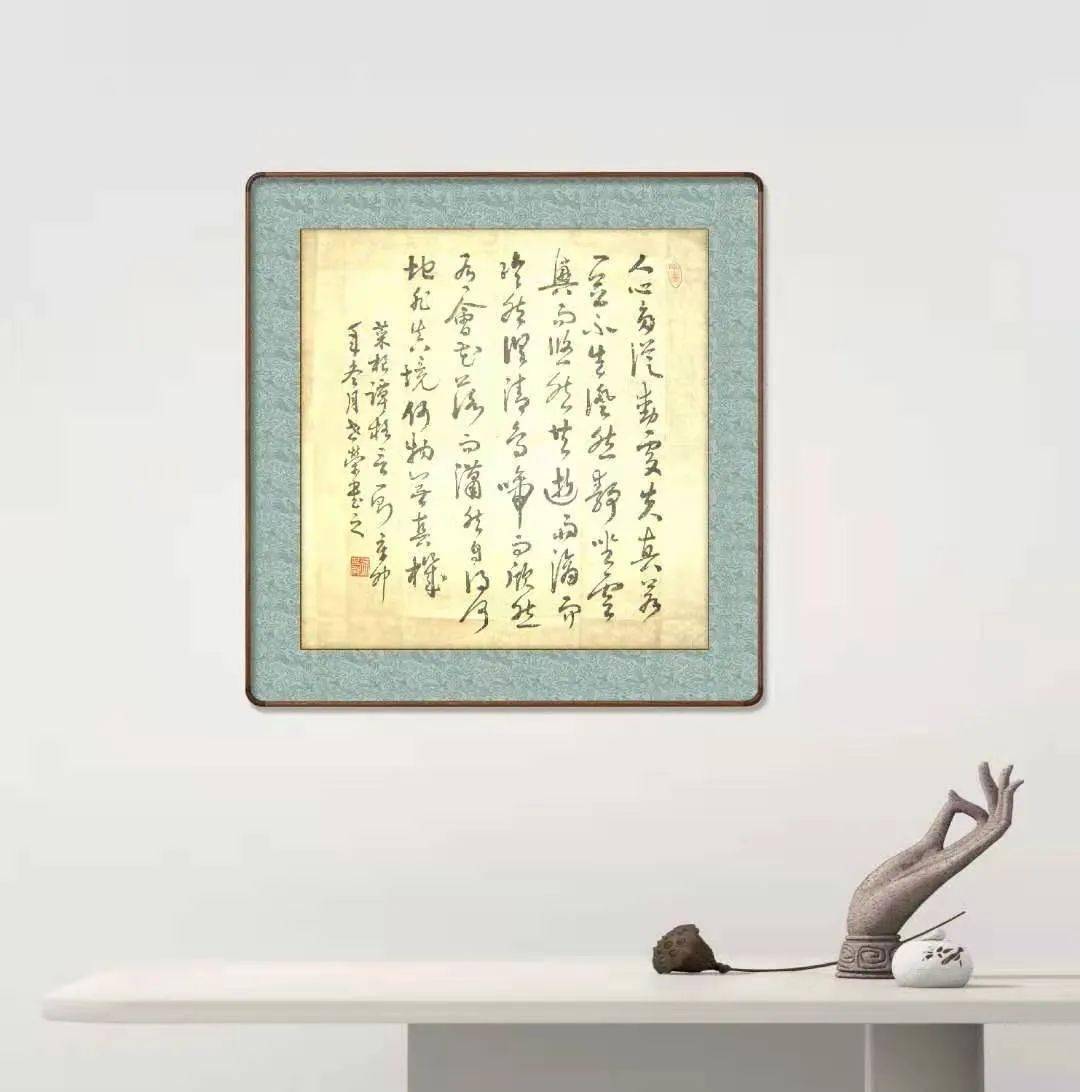 人心多從動處失真若
一念不生澄然靜坐雲
興而悠然共逝雨滴而
冷然俱清鳥啼而欣然
有會花落而瀟然自得何
地非真境何物無真機
菜根譚格言一則辛卯
年冬月榮書之